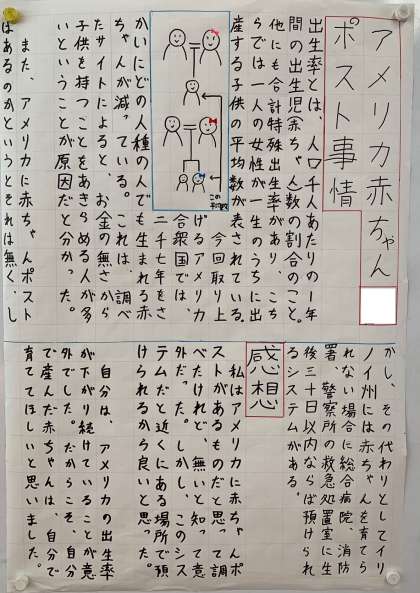 アメリカ赤ちゃん
ポスト事情
出生率とは、人口千人あたりの1年
間の出生児(赤ちゃん)数の割合のこと。
他にも合計特殊出生率があり、こち
らでは一人の女性が一生のうちに出
産する子供の平均数が表されている。
今回取り上
げるアメリカ
合衆国では、
二千七年をさ
かいにどの人種の人でも生まれる赤
ちゃんが減っている。これは、調べ
たサイトによると、お金の無さから
子供を持つことをあきらめる人が多
いということが原因だと分かった。
また、アメリカに赤ちゃんポスト
はあるのかというとそれは無く、し
かし、その代わりとしてイリ
ノイ州には赤ちゃんを育てら
れない場合に総合病院、消防
署、警察所の救急処置室に生
後三十日以内ならば預けられ
るシステムがある。
感想
私はアメリカに赤ちゃんポ
ストがあるものだと思って調
べたけれど、無いと知って意
外だった。しかし、このシス
テムだと近くにある場所で預
けられるから良いと思った。
自分は、アメリカの出生率
が下がり続けていることが意
外でした。だからこそ、自分
で産んだ赤ちゃんは、自分で
育ててほしいと思いました。